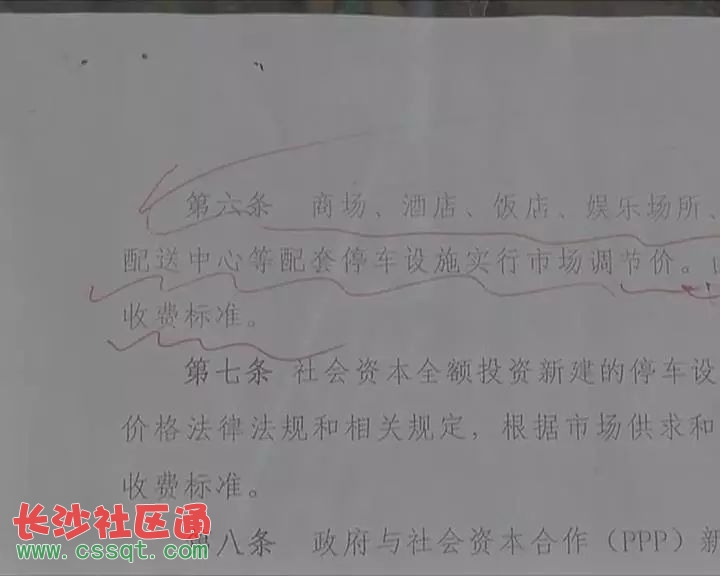 第六条 商场、酒店、饭店、娱乐场所、
配送中心等配套停车设施实行市场调节价。
收费标准。
第七条 社会资本全额投资新建的停车设
价格法律法规和相关规定，根据市场供求和
收费标准。
第八条 政府与社会资本合作（PPP）新
长沙社区通
www.cssqt.com